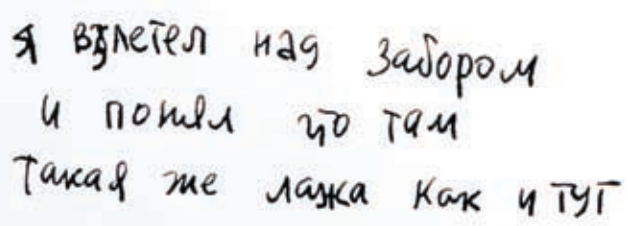 я взлетел над забором
и понял что там
такая же лажа как и тут